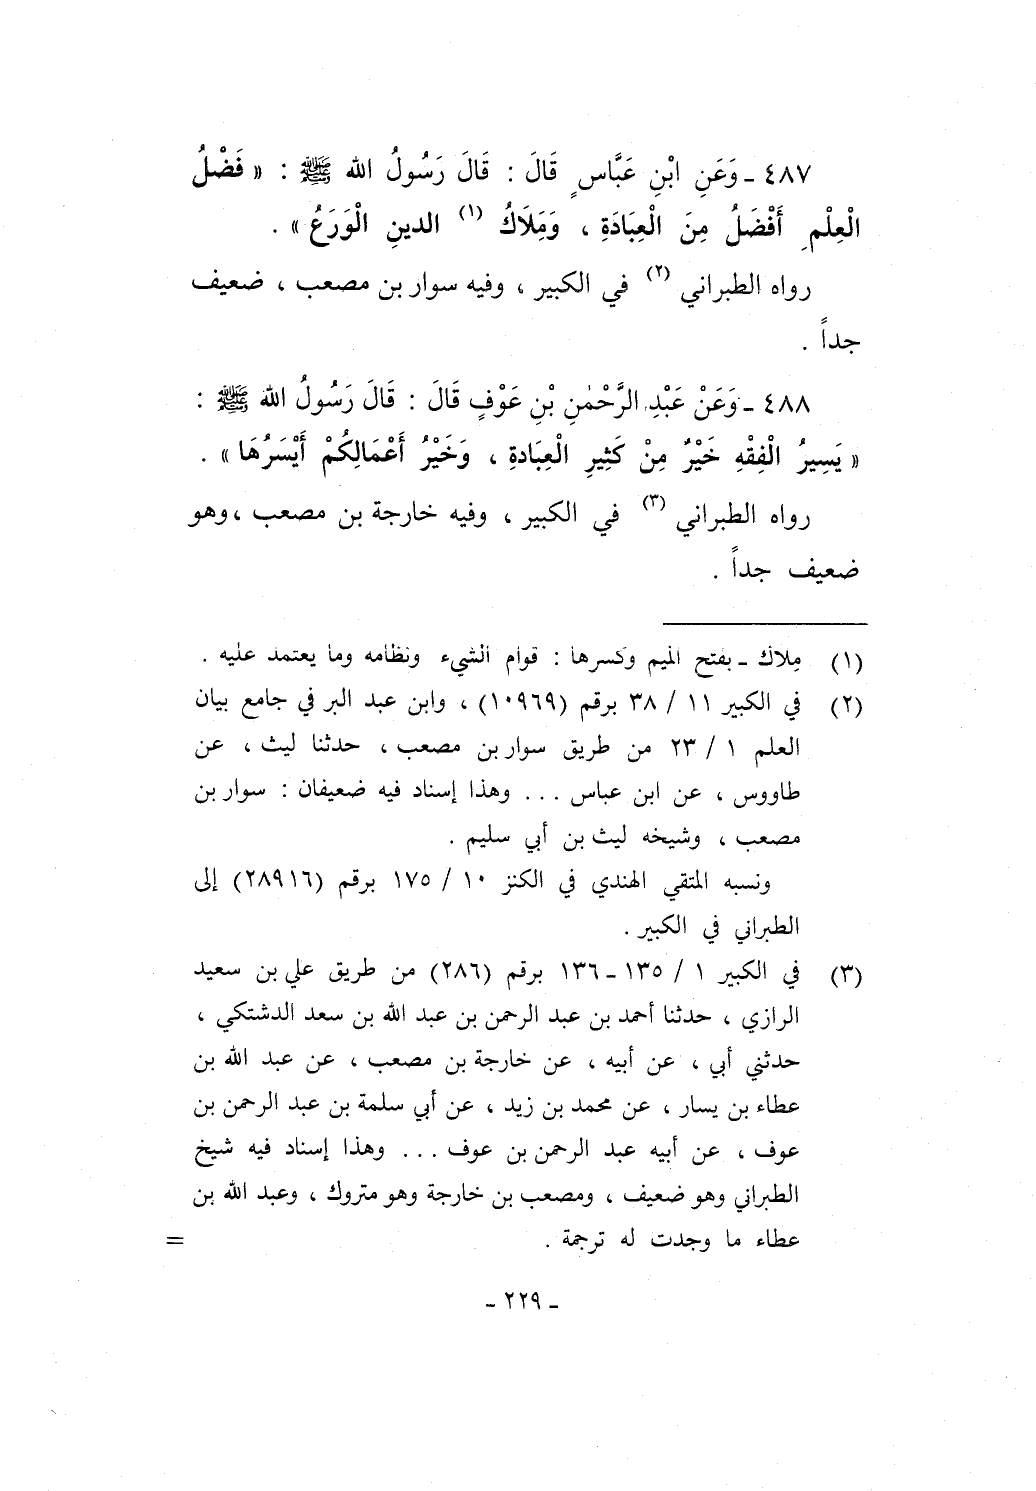 ٤٨٧ ـ وَعَنِ ابْنِ عَبَّاسٍ قَالَ : قَالَ رَسُولُ الله ﷺ : « فَضْلُ
الْعِلْمِ أَفْضَلُ مِنَ الْعِبَادَةِ ، وَمَِلَاكُ (١) الدينِ الْوَرَعُ » .
رواه الطبراني (٢) في الكبير ، وفيه سوار بن مصعب ، ضعيف
جداً .
٤٨٨ ـ وَعَنْ عَبْدِ الرَّحْمٰنِ بْنِ عَوْفٍ قَالَ : قَالَ رَسُولُ الله ﷺ :
« يَسِيرُ الْفِقْهِ خَيْرٌ مِنْ كَثِيرِ الْعِبَادةِ ، وَخَيْرُ أَعْمَالِكُمْ أَيْسَرُهَا » .
رواه الطبراني (٣) في الكبير ، وفيه خارجة بن مصعب ، وهو
ضعيف جداً .
(١) مِلاك ـ بفتح الميم وكسرها : قوام الشيء ونظامه وما يعتمد عليه .
(٢) في الكبير ١١ / ٣٨ برقم (١٠٩٦٩) ، وابن عبد البر في جامع بيان
العلم ١ / ٢٣ من طريق سوار بن مصعب ، حدثنا ليث ، عن
طاووس ، عن ابن عباس ... وهذا إسناد فيه ضعيفان : سوار بن
مصعب ، وشيخه ليث بن أبي سليم .
ونسبه المتقي الهندي في الكنز ١٠ / ١٧٥ برقم (٢٨٩١٦) إلى
الطبراني في الكبير .
(٣) في الكبير ١ / ١٣٥ ـ ١٣٦ برقم (٢٨٦) من طريق علي بن سعيد
الرازي ، حدثنا أحمد بن عبد الرحمن بن عبد الله بن سعد الدشتكي ،
حدثني أبي ، عن أبيه ، عن خارجة بن مصعب ، عن عبد الله بن
عطاء بن يسار ، عن محمد بن زيد ، عن أبي سلمة بن عبد الرحمن بن
عوف ، عن أبيه عبد الرحمن بن عوف ... وهذا إسناد فيه شيخ
الطبراني وهو ضعيف ، ومصعب بن خارجة وهو متروك ، وعبد الله بن
عطاء ما وجدت له ترجمة . =
ـ ٢٢٩ ـ